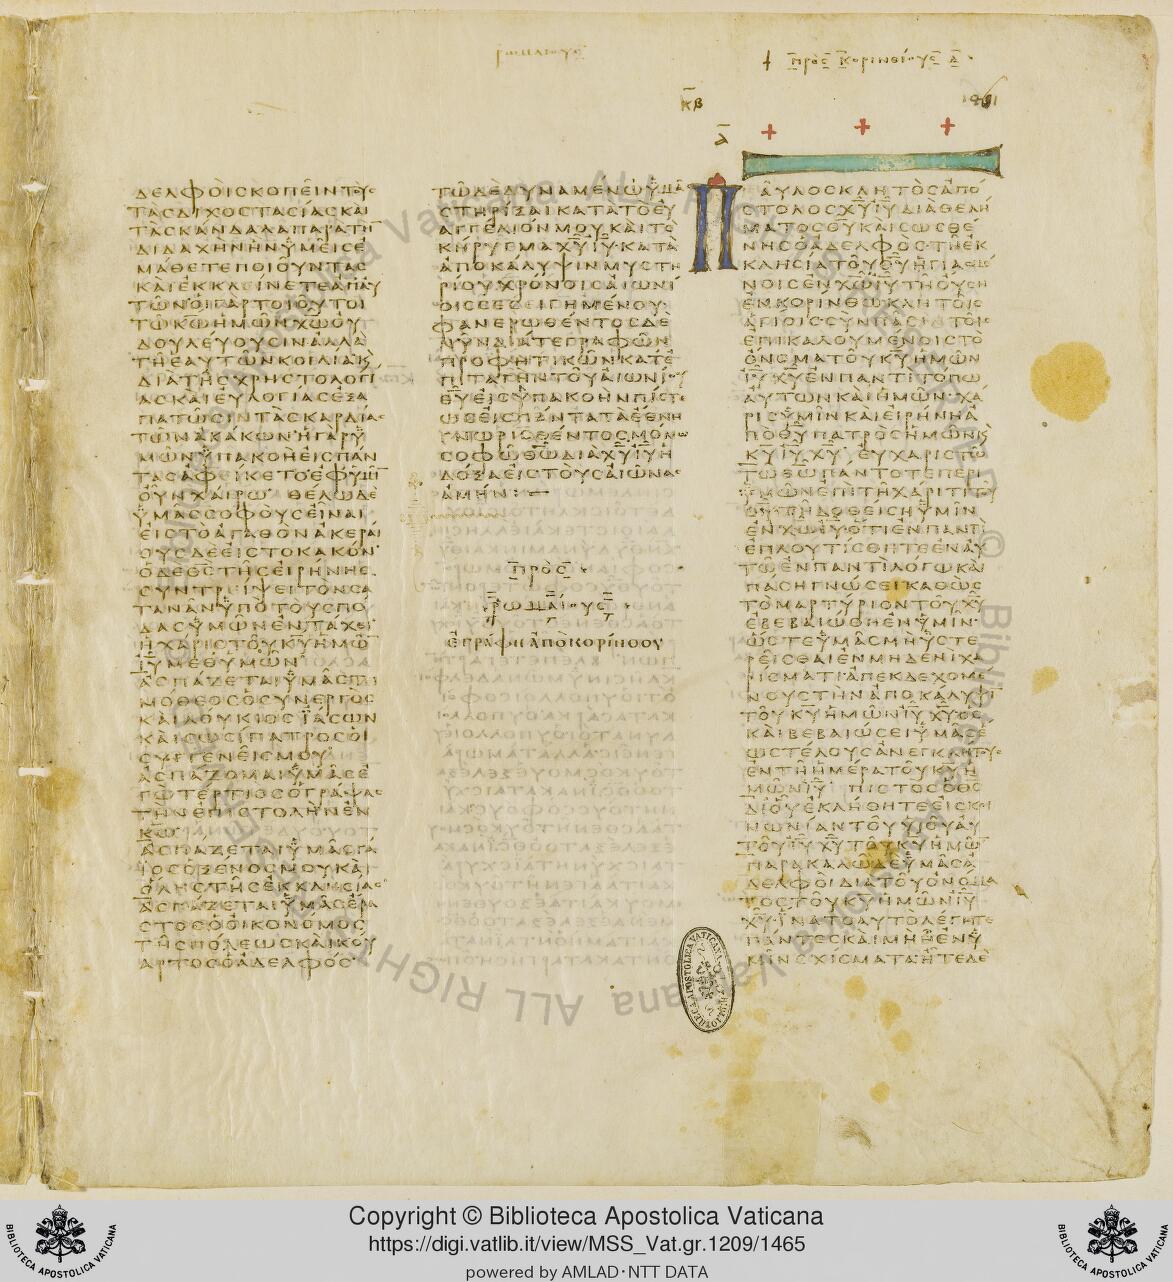 ρωμαιους
† πρὸς κορινθίους α
κβ
α
ΔΕΛΦΟΙΣΚΟΠΕΙΝΤΟΥΣ
ΤΑΣΔΙΧΟΣΤΑΣΙΑΣΚΑΙ
ΤΑΣΚΑΝΔΑΛΑΠΑΡΑΤΗ
ΔΙΔΑΧΗΝΗΝΥΜΕΙΣΕ
ΜΑΘΕΤΕΠΟΙΟΥΝΤΑΣ
ΚΑΙΕΚΚΛΕΙΝΕΤΕΑΠΑΥ
ΤΩΝΟΙΓΑΡΤΟΙΟΥΤΟΙ
ΤΩΚΩΗΜΩΝΧΩΟΥ
ΔΟΥΛΕΥΟΥΣΙΝΑΛΛΑ
ΤΗΕΑΥΤΩΝΚΟΙΛΙΑΚ
ΔΙΑΤΗΣΧΡΗΣΤΟΛΟΓΙ
ΑΣΚΑΙΕΥΛΟΓΙΑΣΕΞΑ
ΠΑΤΩΣΙΝΤΑΣΚΑΡΔΙΑΣ
ΤΩΝΑΚΑΚΩΝΗΓΑΡΥ
ΜΩΝΥΠΑΚΟΗΕΙΣΠΑΝ
ΤΑΣΑΦΙΚΕΤΟΕΦΥΜΙ
ΟΥΝΧΑΙΡΩ ΘΕΛΩΔΕ
ΥΜΑΣΣΟΦΟΥΣΕΙΝΑΙ
ΕΙΣΤΟΑΓΑΘΟΝΑΚΕΡΑΙ
ΟΥΣΔΕΕΙΣΤΟΚΑΚΟΝ
ΟΔΕΘΣΤΗΣΕΙΡΗΝΗΣ
ΣΥΝΤΡΙΨΕΙΤΟΝΣΑ
ΤΑΝΑΝΥΠΟΤΟΥΣΠΟ
ΔΑΣΥΜΩΝΕΝΤΑΧΕΙ
ΗΧΑΡΙΣΤΟΥΚΥΗΜΩ
ΙΥΜΕΘΥΜΩΝ
ΑΣΠΑΖΕΤΑΙΥΜΑΣΤΙ
ΜΟΘΕΟΣΟΣΥΝΕΡΓΟΣ
ΚΑΙΛΟΥΚΙΟΣΙΑΣΩΝ
ΚΑΙΣΩΣΙΠΑΤΡΟΣΟΙ
ΣΥΓΓΕΝΕΙΣΜΟΥ
ΑΣΠΑΖΟΜΑΙΥΜΑΣΕ
ΓΩΤΕΡΤΙΟΣΟΓΡΑΨΑΣ
ΤΗΝΕΠΙΣΤΟΛΗΝΕΝ
ΚΩ
ΑΣΠΑΖΕΤΑΙΥΜΑΣΓΑ
ΙΟΣΟΞΕΝΟΣΜΟΥΚΑΙ
ΟΛΗΣΤΗΣΕΚΚΛΗΣΙΑΣ
ΑΣΠΑΖΕΤΑΙΥΜΑΣΕΡΑ
ΣΤΟΣΟΟΙΚΟΝΟΜΟΣ
ΤΗΣΠΟΛΕΩΣΚΑΙΚΟΥ
ΑΡΤΟΣΟΑΔΕΛΦΟΣ
ΤΩΔΕΔΥΝΑΜΕΝΩΥΜΑΣ
ΣΤΗΡΙΞΑΙΚΑΤΑΤΟΕΥ
ΑΓΓΕΛΙΟΝΜΟΥΚΑΙΤΟ
ΚΗΡΥΓΜΑΧΥΙΥΚΑΤΑ
ΑΠΟΚΑΛΥΨΙΝΜΥΣΤΗ
ΡΙΟΥΧΡΟΝΟΙΣΑΙΩΝΙ
ΟΙΣΣΕΣΕΙΓΗΜΕΝΟΥ
ΦΑΝΕΡΩΘΕΝΤΟΣΔΕ
ΝΥΝΔΙΑΤΕΓΡΑΦΩΝ
ΠΡΟΦΗΤΙΚΩΝΚΑΤΕ
ΠΙΤΑΓΗΝΤΟΥΑΙΩΝΙΟΥ
ΘΥΕΙΣΥΠΑΚΟΗΝΠΙΣΤΕ
ΩΣΕΙΣΠΑΝΤΑΤΑΕΘΝΗ
ΓΝΩΡΙΣΘΕΝΤΟΣΜΟΝΩ
ΣΟΦΩΘΩΔΙΑΧΥΙΥΗ
ΔΟΞΑΕΙΣΤΟΥΣΑΙΩΝΑΣ
ΑΜΗΝ:
ΠΡΟΣ
ΡΩΜΑΙΟΥΣ
ΕΓΡΑΦΗΑΠΟΚΟΡΙΝΘΟΥ
ΠΑΥΛΟΣΚΛΗΤΟΣΑΠΟ
ΣΤΟΛΟΣΧΥΙΥΔΙΑΘΕΛΗ
ΜΑΤΟΣΘΥΚΑΙΣΩΣΘΕ
ΝΗΣΟΑΔΕΛΦΟΣΤΗΕΚ
ΚΛΗΣΙΑΤΟΥΘΥΗΓΙΑΣΜΕ
ΝΟΙΣΕΝΧΩΙΥΤΗΟΥΣΗ
ΕΝΚΟΡΙΝΘΩΚΛΗΤΟΙΣ
ΑΓΙΟΙΣΣΥΝΠΑΣΙΤΟΙΣ
ΕΠΙΚΑΛΟΥΜΕΝΟΙΣΤΟ
ΟΝΟΜΑΤΟΥΚΥΗΜΩΝ
ΙΥΧΥΕΝΠΑΝΤΙΤΟΠΩ
ΑΥΤΩΝΚΑΙΗΜΩΝΧΑ
ΡΙΣΥΜΙΝΚΑΙΕΙΡΗΝΗΑ
ΠΟΘΥΠΑΤΡΟΣΗΜΩΝΚ
ΚΥΙΥΧΥ ΕΥΧΑΡΙΣΤΩ
ΤΩΘΩΠΑΝΤΟΤΕΠΕΡΙ
ΥΜΩΝΕΠΙΤΗΧΑΡΙΤΙΤΟΥ
ΘΥΤΗΔΟΘΕΙΣΗΥΜΙΝ
ΕΝΧΩΙΥΟΤΙΕΝΠΑΝΤΙ
ΕΠΛΟΥΤΙΣΘΗΤΕΕΝΑΥ
ΤΩΕΝΠΑΝΤΙΛΟΓΩΚΑΙ
ΠΑΣΗΓΝΩΣΕΙΚΑΘΩΣ
ΤΟΜΑΡΤΥΡΙΟΝΤΟΥΧΥ
ΕΒΕΒΑΙΩΘΗΕΝΥΜΙΝ
ΩΣΤΕΥΜΑΣΜΗΥΣΤΕ
ΡΕΙΣΘΑΙΕΝΜΗΔΕΝΙΧΑ
ΡΙΣΜΑΤΙΑΠΕΚΔΕΧΟΜΕ
ΝΟΥΣΤΗΝΑΠΟΚΑΛΥΨΙ
ΤΟΥΚΥΗΜΩΝΙΥΧΥΟΣ
ΚΑΙΒΕΒΑΙΩΣΕΙΥΜΑΣΕ
ΩΣΤΕΛΟΥΣΑΝΕΓΚΛΗΤΟΥΣ
ΕΝΤΗΗΜΕΡΑΤΟΥΚΥΗ
ΜΩΝΙΥ ΠΙΣΤΟΣΟΘΣ
ΔΙΟΥΕΚΛΗΘΗΤΕΕΙΣΚΟΙ
ΝΩΝΙΑΝΤΟΥΥΙΟΥΑΥ
ΤΟΥΙΥΧΥΤΟΥΚΥΗΜΩ
ΠΑΡΑΚΑΛΩΔΕΥΜΑΣΑ
ΔΕΛΦΟΙΔΙΑΤΟΥΟΝΟΜΑ
ΤΟΣΤΟΥΚΥΗΜΩΝΙΥ
ΧΥΙΝΑΤΟΑΥΤΟΛΕΓΗΤΕ
ΠΑΝΤΕΣΚΑΙΜΗΗΕΝΥ
ΜΙΝΣΧΙΣΜΑΤΑΗΤΕΔΕ
Copyright © Biblioteca Apostolica Vaticana
https://digi.vatlib.it/view/MSS_Vat.gr.1209/1465
powered by AMLAD·NTT DATA